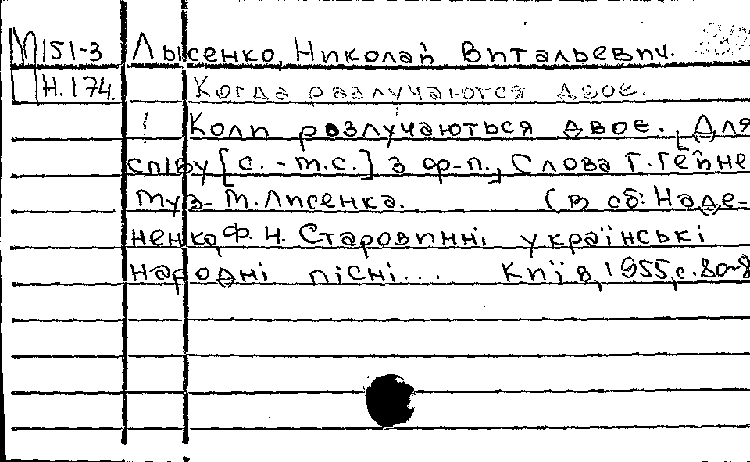 М 151-3 Лысенко, Николай Витальевич.
Н.174 Когда разлучаются двое.
Коли разлучаються двоє. [Для
співу [с. - т.с.] з ф-п., Слова Г. Гейне
Муз. М. Лисенка. (в об: Наде-
ненко, Ф. Н. Старовинні українські
народні пісні... Київ, 1955, с. 80-8